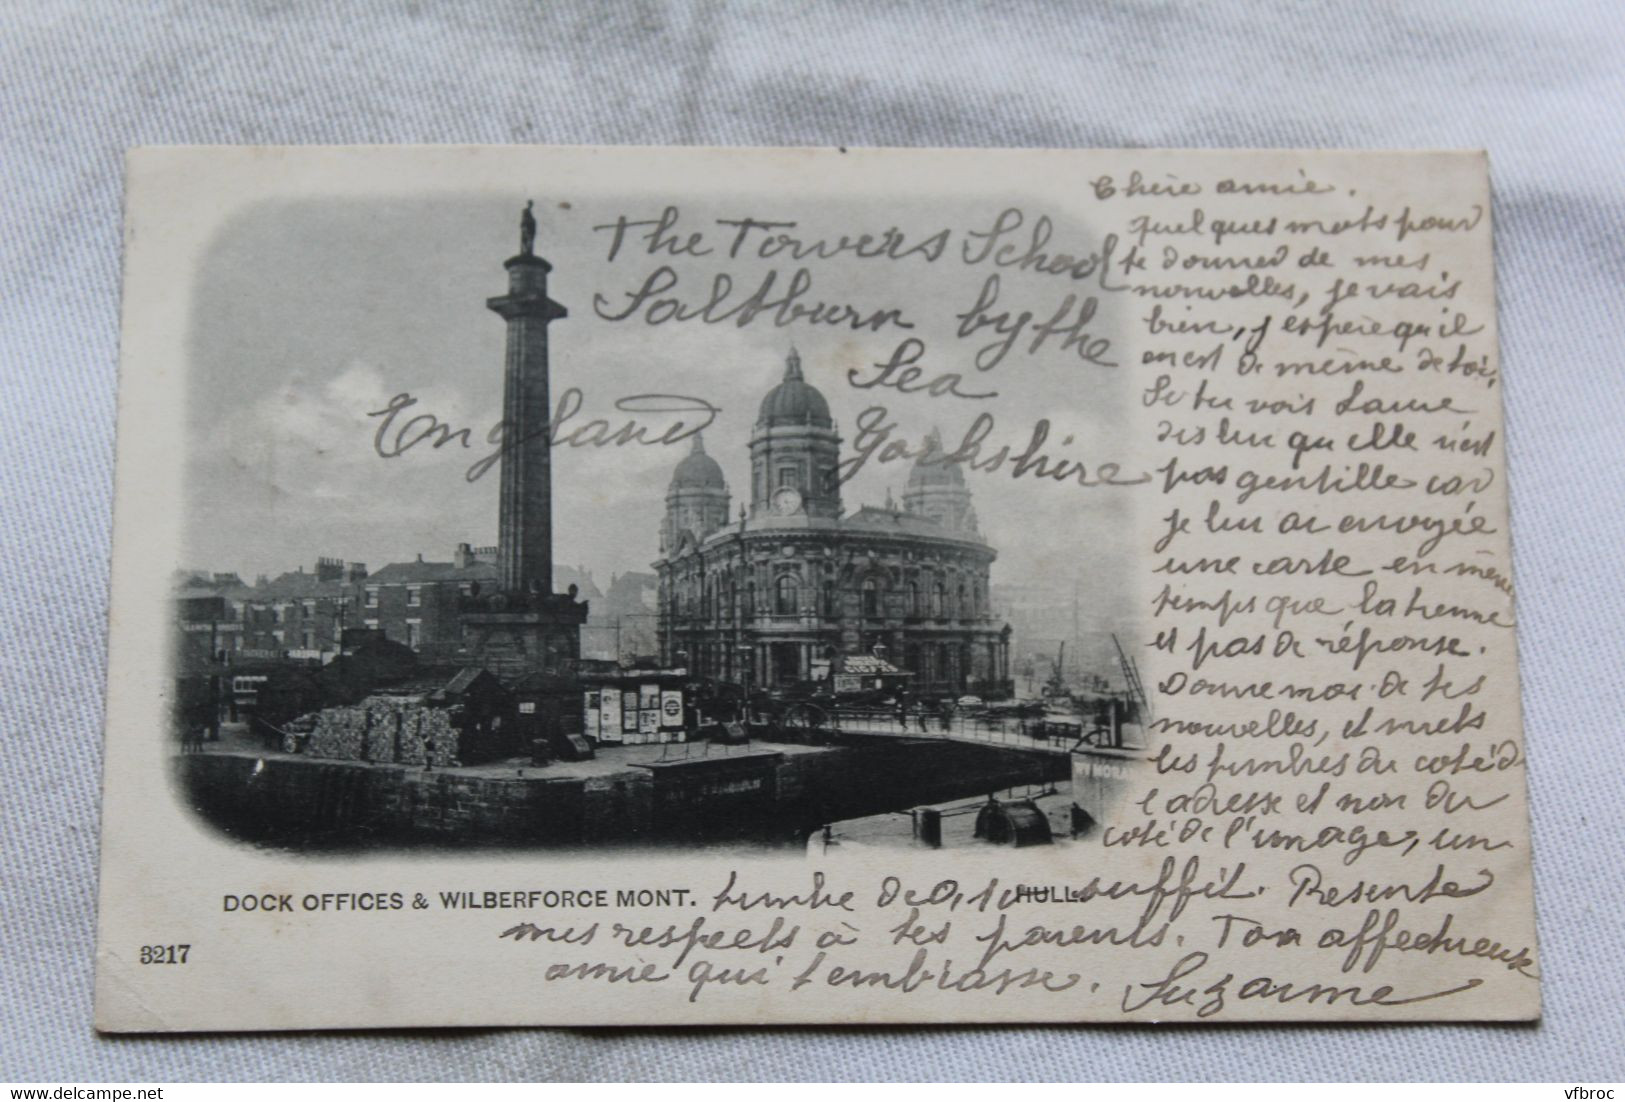 The Towers School
Saltburn by the
Sea
England Yorkshire
Chère amie.
quelques mots pour
te donner de mes
nouvelles, je vais
bien, j'espère qu'il
en est de même de toi,
Si tu vois Laure
dis lui qu'elle n'est
pas gentille car
je lui ai envoyée
une carte en même
temps que la tienne
et pas de réponse.
Donne moi de tes
nouvelles, et mets
les timbres du coté d
l'adresse et non du
coté de l'image, un
timbre de 0,10 suffit. Présente
mes respects à tes parents. Ton affectueuse
amie qui t'embrasse. Suzanne
DOCK OFFICES & WILBERFORCE MONT. HULL.
3217
WM MORAN
https://www.delcampe.net
vfbroc